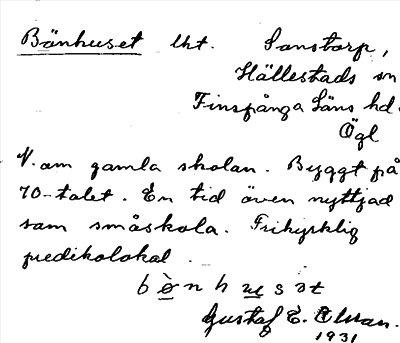 Bänhuset lht. Sanstorp,
Hällestads sn
Finspånga Läns hd.
Ögl
N. om gamla skolan. Byggt på
70-talet. En tid även nyttjad
som småskola. Frikyrklig
predikolokal.
bènhusət
Gustaf E.
1931